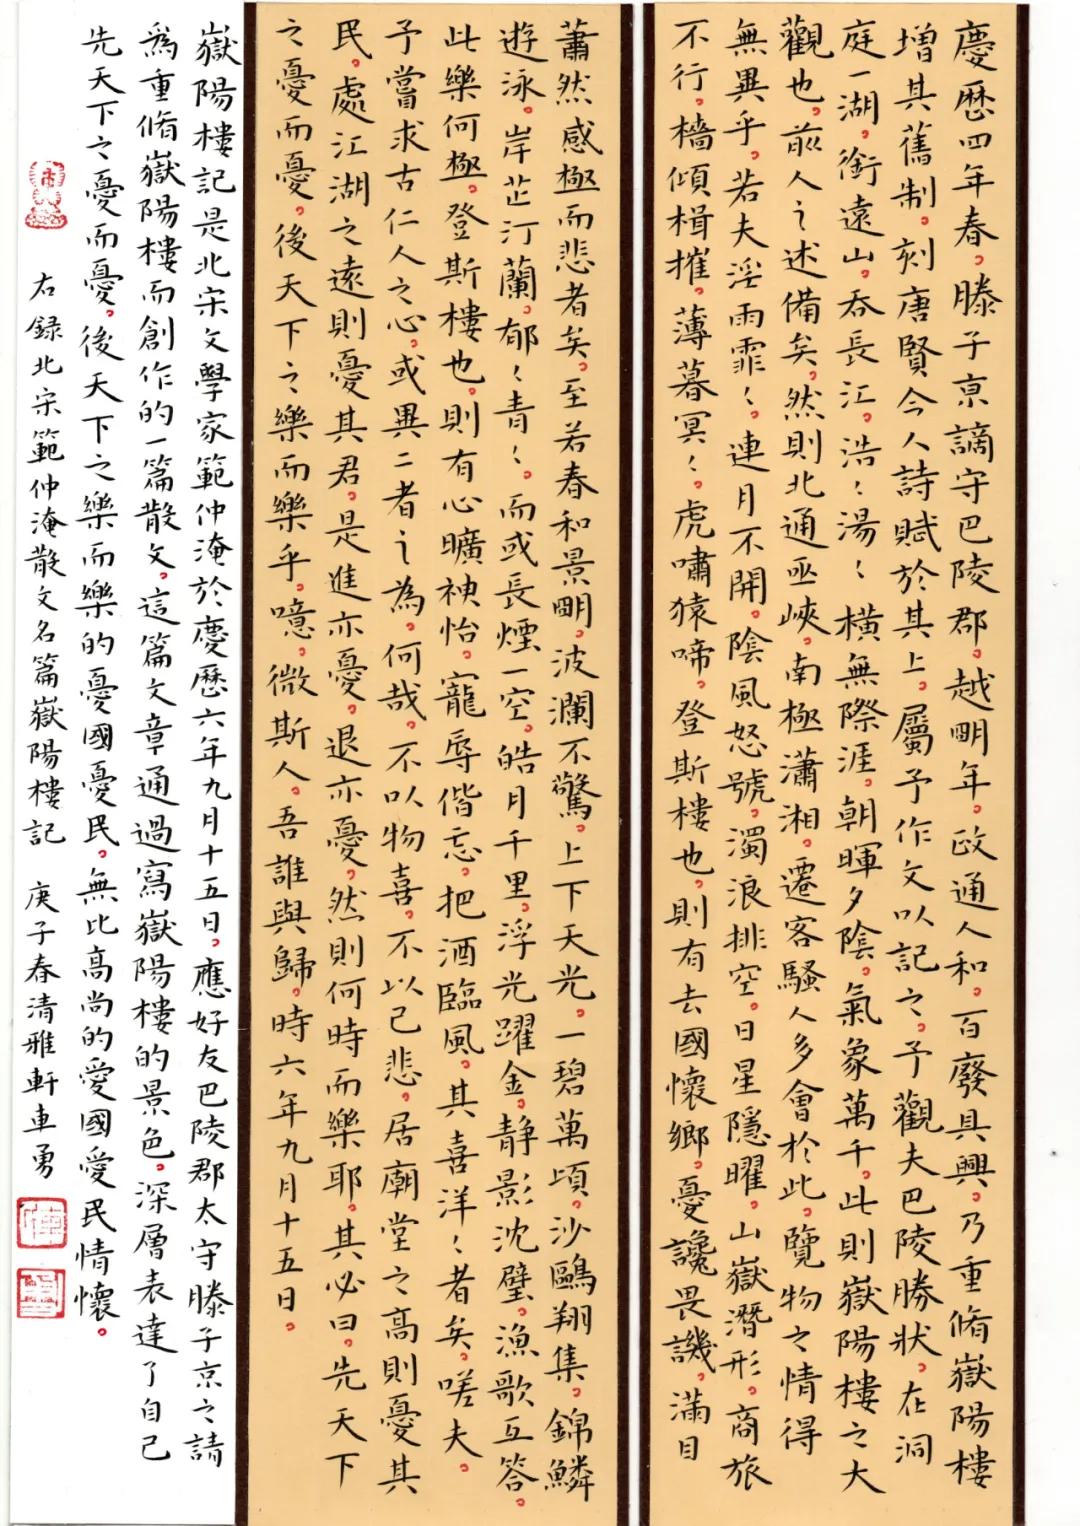 慶歷四年春。滕子京謫守巴陵郡。越明年。政通人和。百廢具興。乃重脩嶽陽樓
增其舊制。刻唐賢今人詩賦於其上。屬予作文以記之。予觀夫巴陵勝狀。在洞
庭一湖。銜遠山。吞長江。浩〻湯〻橫無際涯。朝暉夕陰。氣象萬千。此則嶽陽樓之大
觀也。前人之述備矣。然則北通巫峽。南極瀟湘。遷客騷人多會於此。覽物之情得
無異乎。若夫淫雨霏〻。連月不開。陰風怒號。濁浪排空。日星隱曜。山嶽潛形。商旅
不行。檣傾楫摧。薄暮冥〻。虎嘯猿啼。登斯樓也。則有去國懷鄉。憂讒畏譏。滿目
蕭然感極而悲者矣。至若春和景明。波瀾不驚。上下天光。一碧萬頃。沙鷗翔集。錦鱗
遊泳。岸芷汀蘭。郁〻青〻。而或長煙一空。皓月千里。浮光躍金。靜影沈璧。漁歌互答。
此樂何極。登斯樓也。則有心曠神怡。寵辱偕忘。把酒臨風。其喜洋〻者矣。嗟夫。
予嘗求古仁人之心。或異二者之為。何哉。不以物喜。不以己悲。居廟堂之高則憂其
民。處江湖之遠則憂其君。是進亦憂。退亦憂。然則何時而樂耶。其必曰。先天下
之憂而憂。後天下之樂而樂乎。噫。微斯人。吾誰與歸。時六年九月十五日。
嶽陽樓記是北宋文學家範仲淹於慶歷六年九月十五日。應好友巴陵郡太守滕子京之請
為重脩嶽陽樓而創作的一篇散文。這篇文章通過寫嶽陽樓的景色。深層表達了自己
先天下之憂而憂。後天下之樂而樂的憂國憂民。無比高尚的愛國愛民情懷。
右錄北宋範仲淹散文名篇嶽陽樓記 庚子春清雅軒車勇